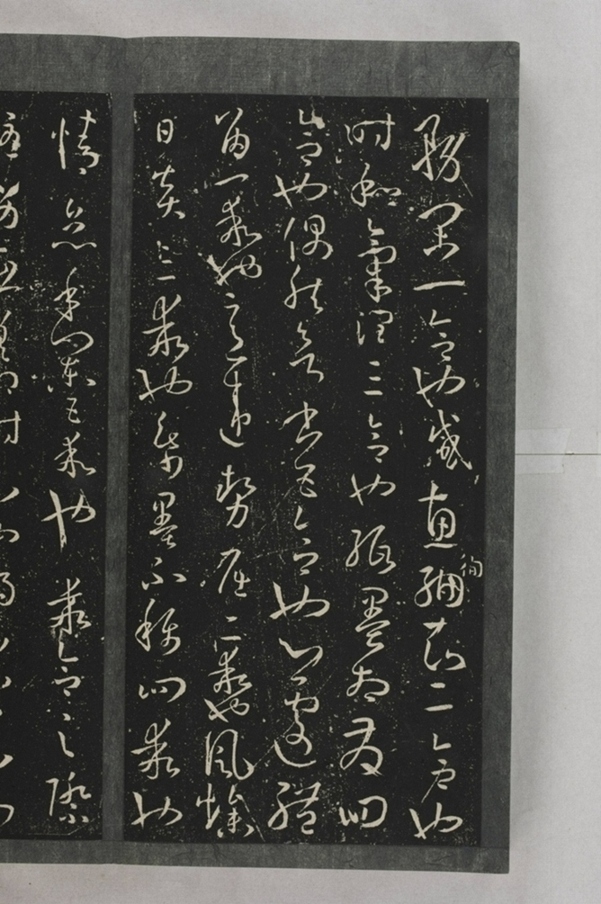 務閑一合也感惠徇知二合也
時和氣潤三合也紙墨相發四
合也偶然欲書五合也心遽體
留一乖也意違勢屈二乖也風燥
日炎三乖也紙墨不稱四乖也
情怠手闌五乖也乖合之際